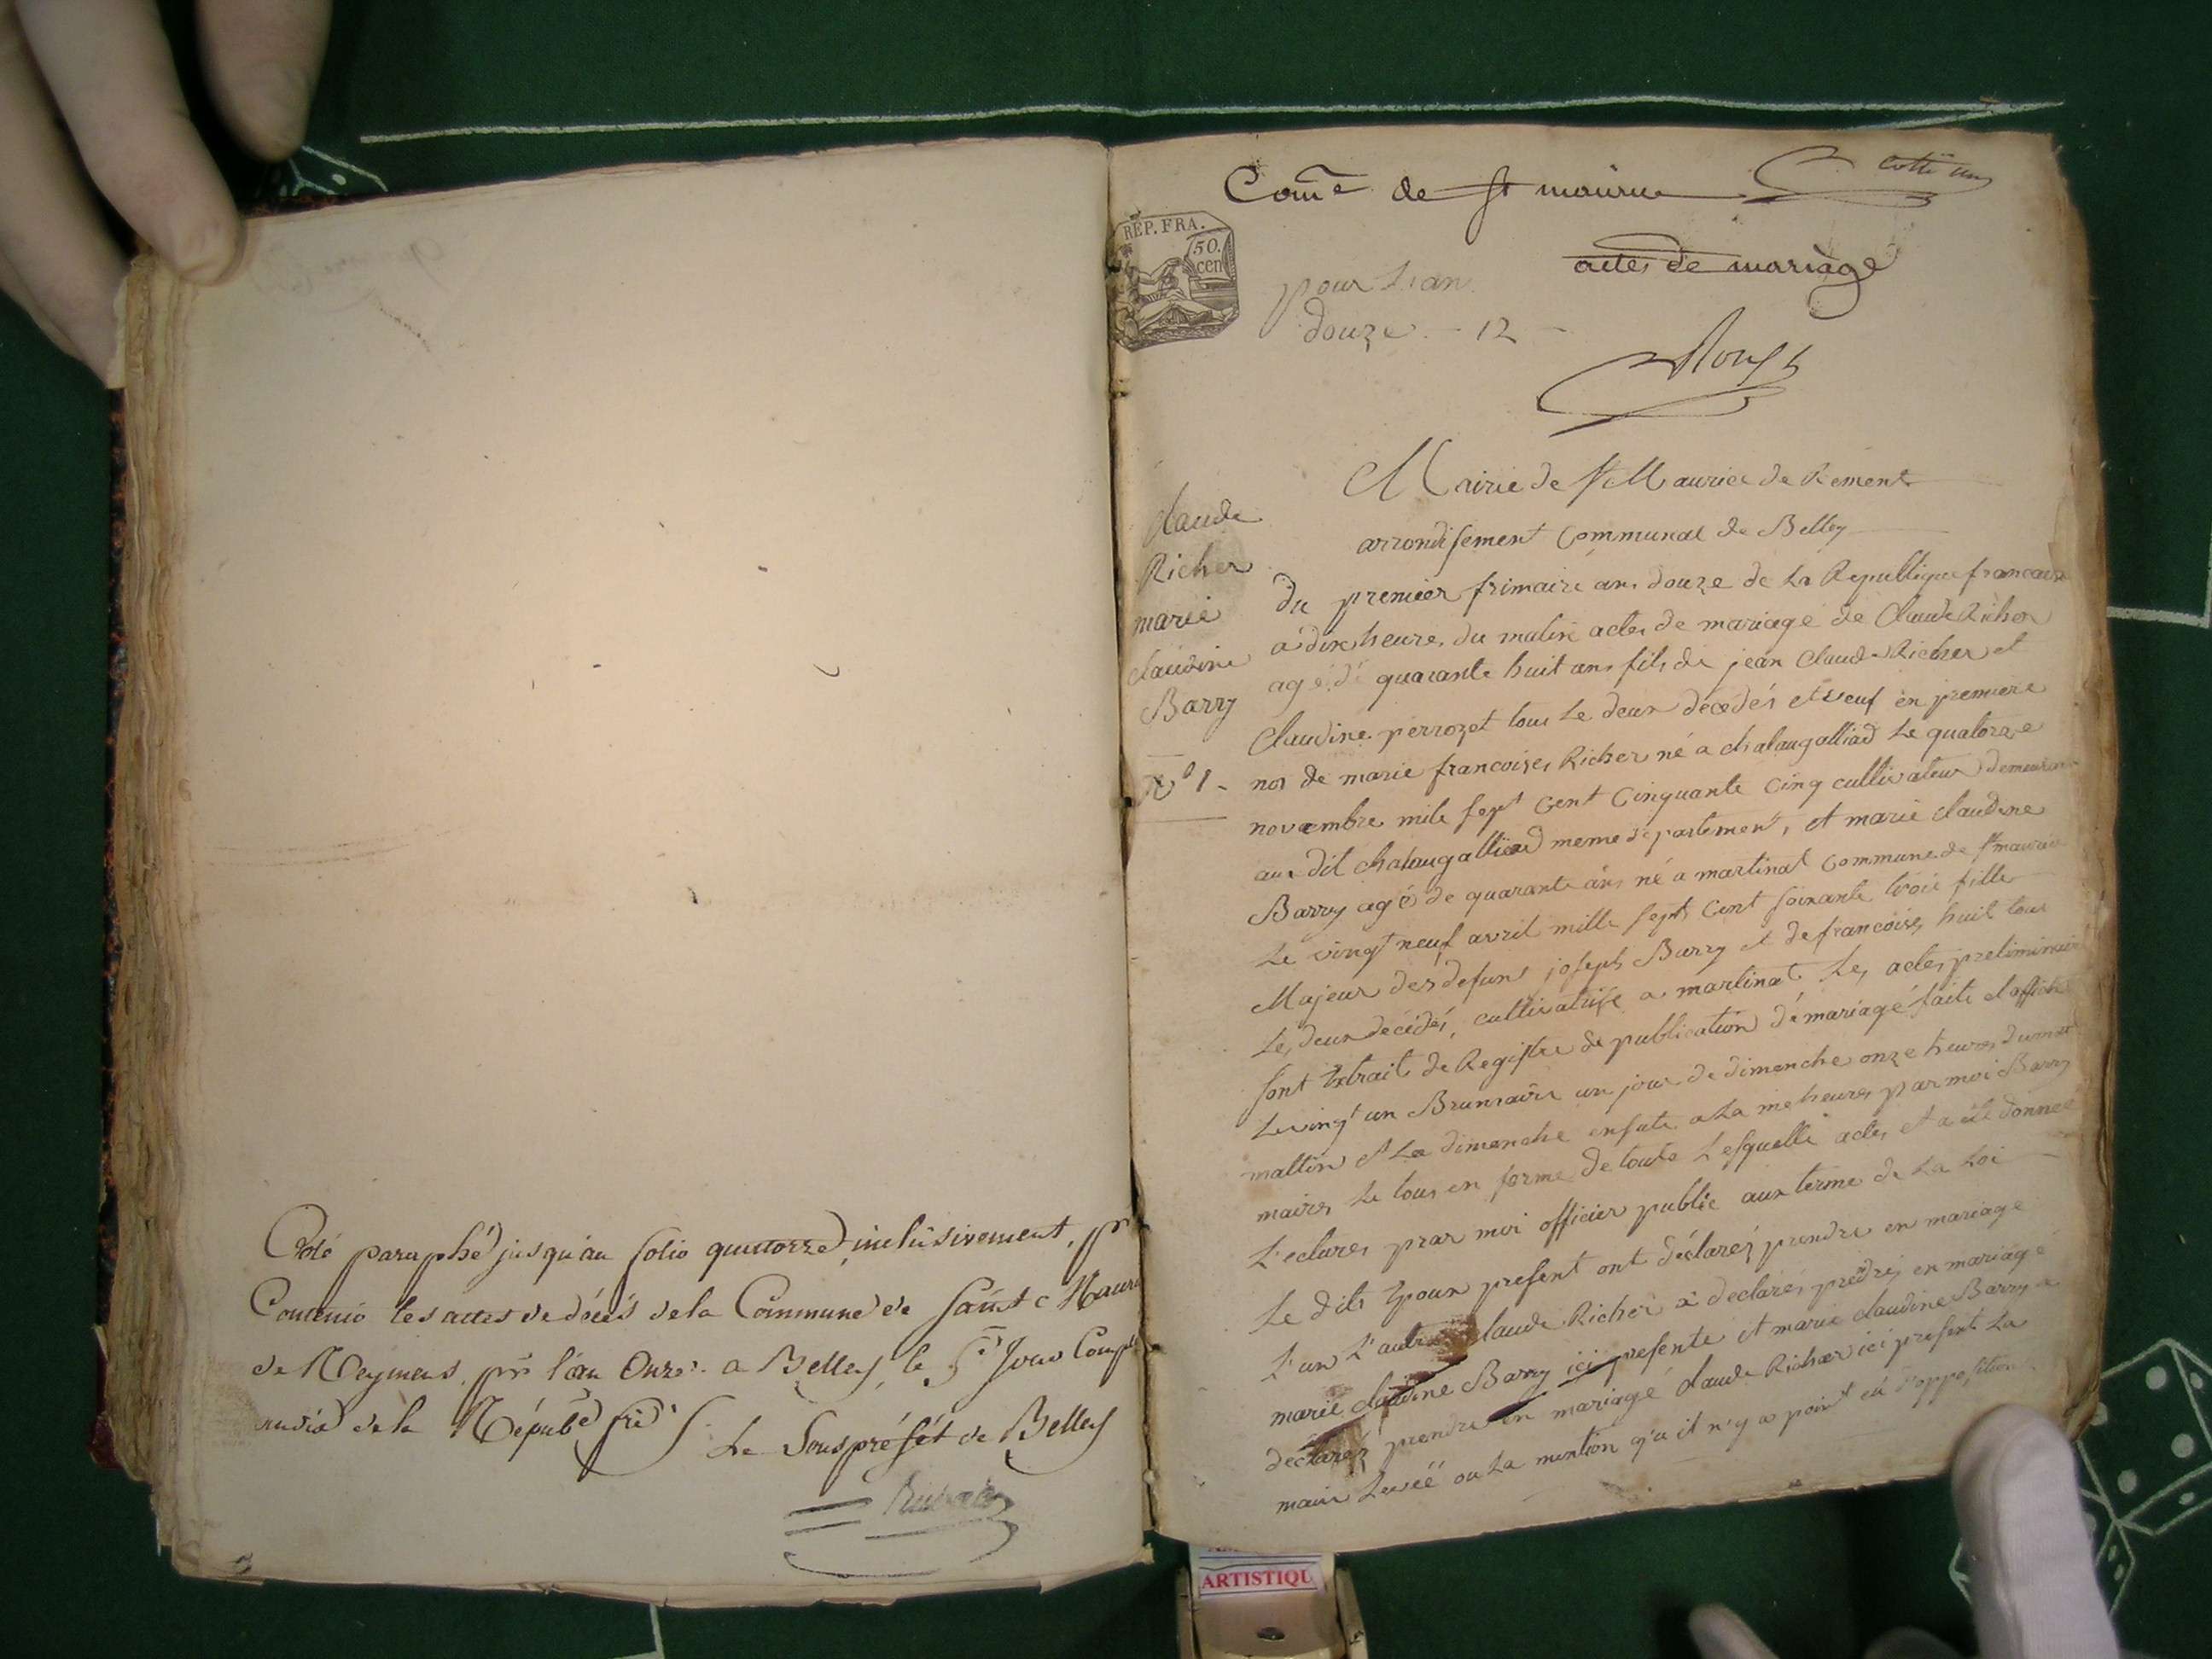 Coté paraphé jusqu'au folio quatorze inclusivement, pr
Contenir les actes de décés de la Commune de Saint Mauri
de Reymens, pr l'an Onze. a Belley, le 5e Jour Compl
susdit de la Répube frse
Le Souspréfét de Belley
Comne de St maurice
cotté un
REP. FRA.
50.
cen
actes de mariage
pour L'an
douze - 12 -
Mairie de St Maurice de Rement
arrondissement Communal de Belley
Claude
Richer
marie
claudine
Barry
No 1 -
du premier frimaire an douze de La Republique francaise
a dix heure, du matin actes de mariage de Claude Richer
agé de quarante huit ans fils de jean Claude Richer et
Claudine perrozet tous Le deux décédés et veuf en premiere
nos de marie francoises Richer né a chalaugalliad Le quatorze
novembre mile sept Cent Cinquante Cinq cultivateur demeurant
au dit chalaugalliad meme département, et marie claudine
Barry agé de quarante ans né a martinat Commune de St maurice
Le vingt neuf avril mille sept Cent soixante trois fille
Majeur des defuns joseph Barry et de francoise, huit tous
Les deux décédés, cultivatrise a martinat Les actes preliminair
sont Extrait de Registre de publication dé mariagé faite et affiché
Le vingt un Brumaire un jour de dimanche onze heures du
mattin et Le dimanche ensuite a La me heures par moi Barry
maires Le tous en forme de toute Lesquelle actes et a été donnée
L'eclures prar moi officier public aux terme de La Loi
Le dits Epoux present ont déclarés prendre en mariage
L'un L'autre claude Richer a declarés prendre en mariagé
marie claudine Barry ici presente et marie claudine Barry a
déclarés prendre en mariagé claude Richer ici present La
main Levée ou La mention qu'il n'y a point eu d'opposition
ARTISTIQU